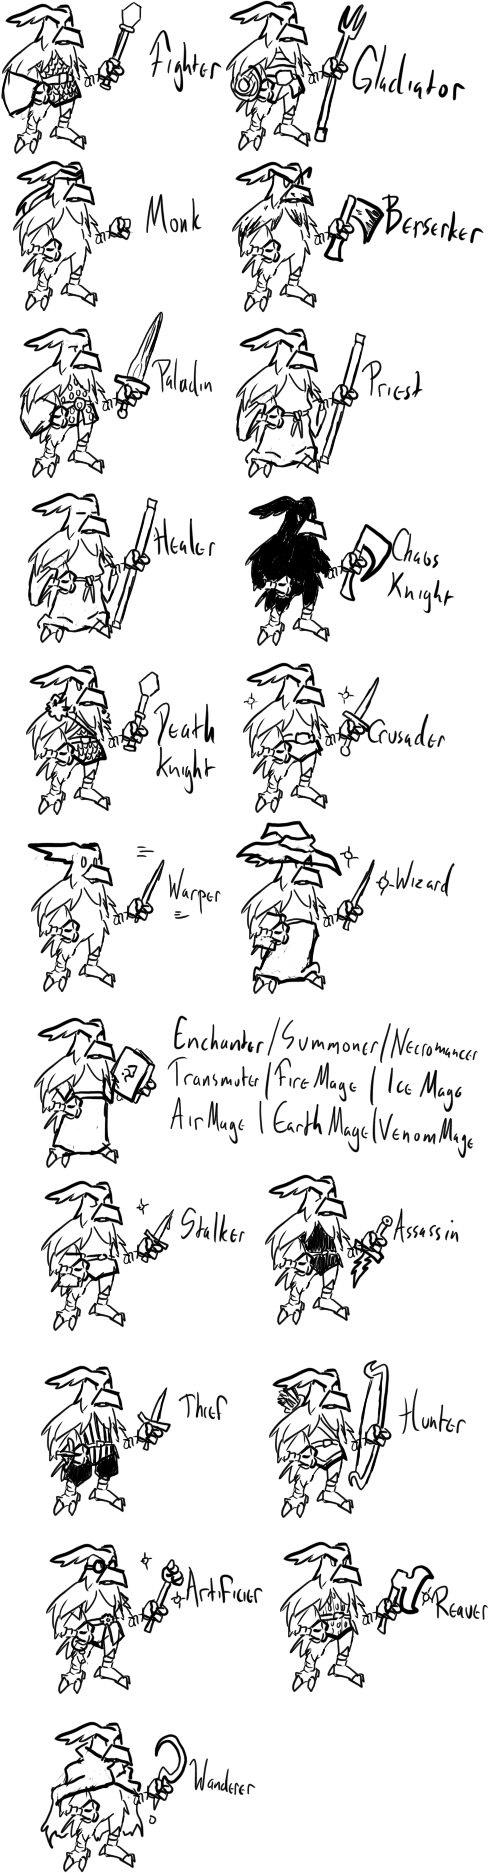 Fighter
Gladiator
Monk
Berserker
Paladin
Priest
Healer
Chaos
Knight
Death
Knight
Crusader
Warper
Wizard
Enchanter/Summoner/Necromancer
Transmuter/Fire Mage | Ice Mage
Air Mage | Earth Mage/Venom Mage
Stalker
Assassin
Thief
Hunter
Artificier
Reaver
Wanderer